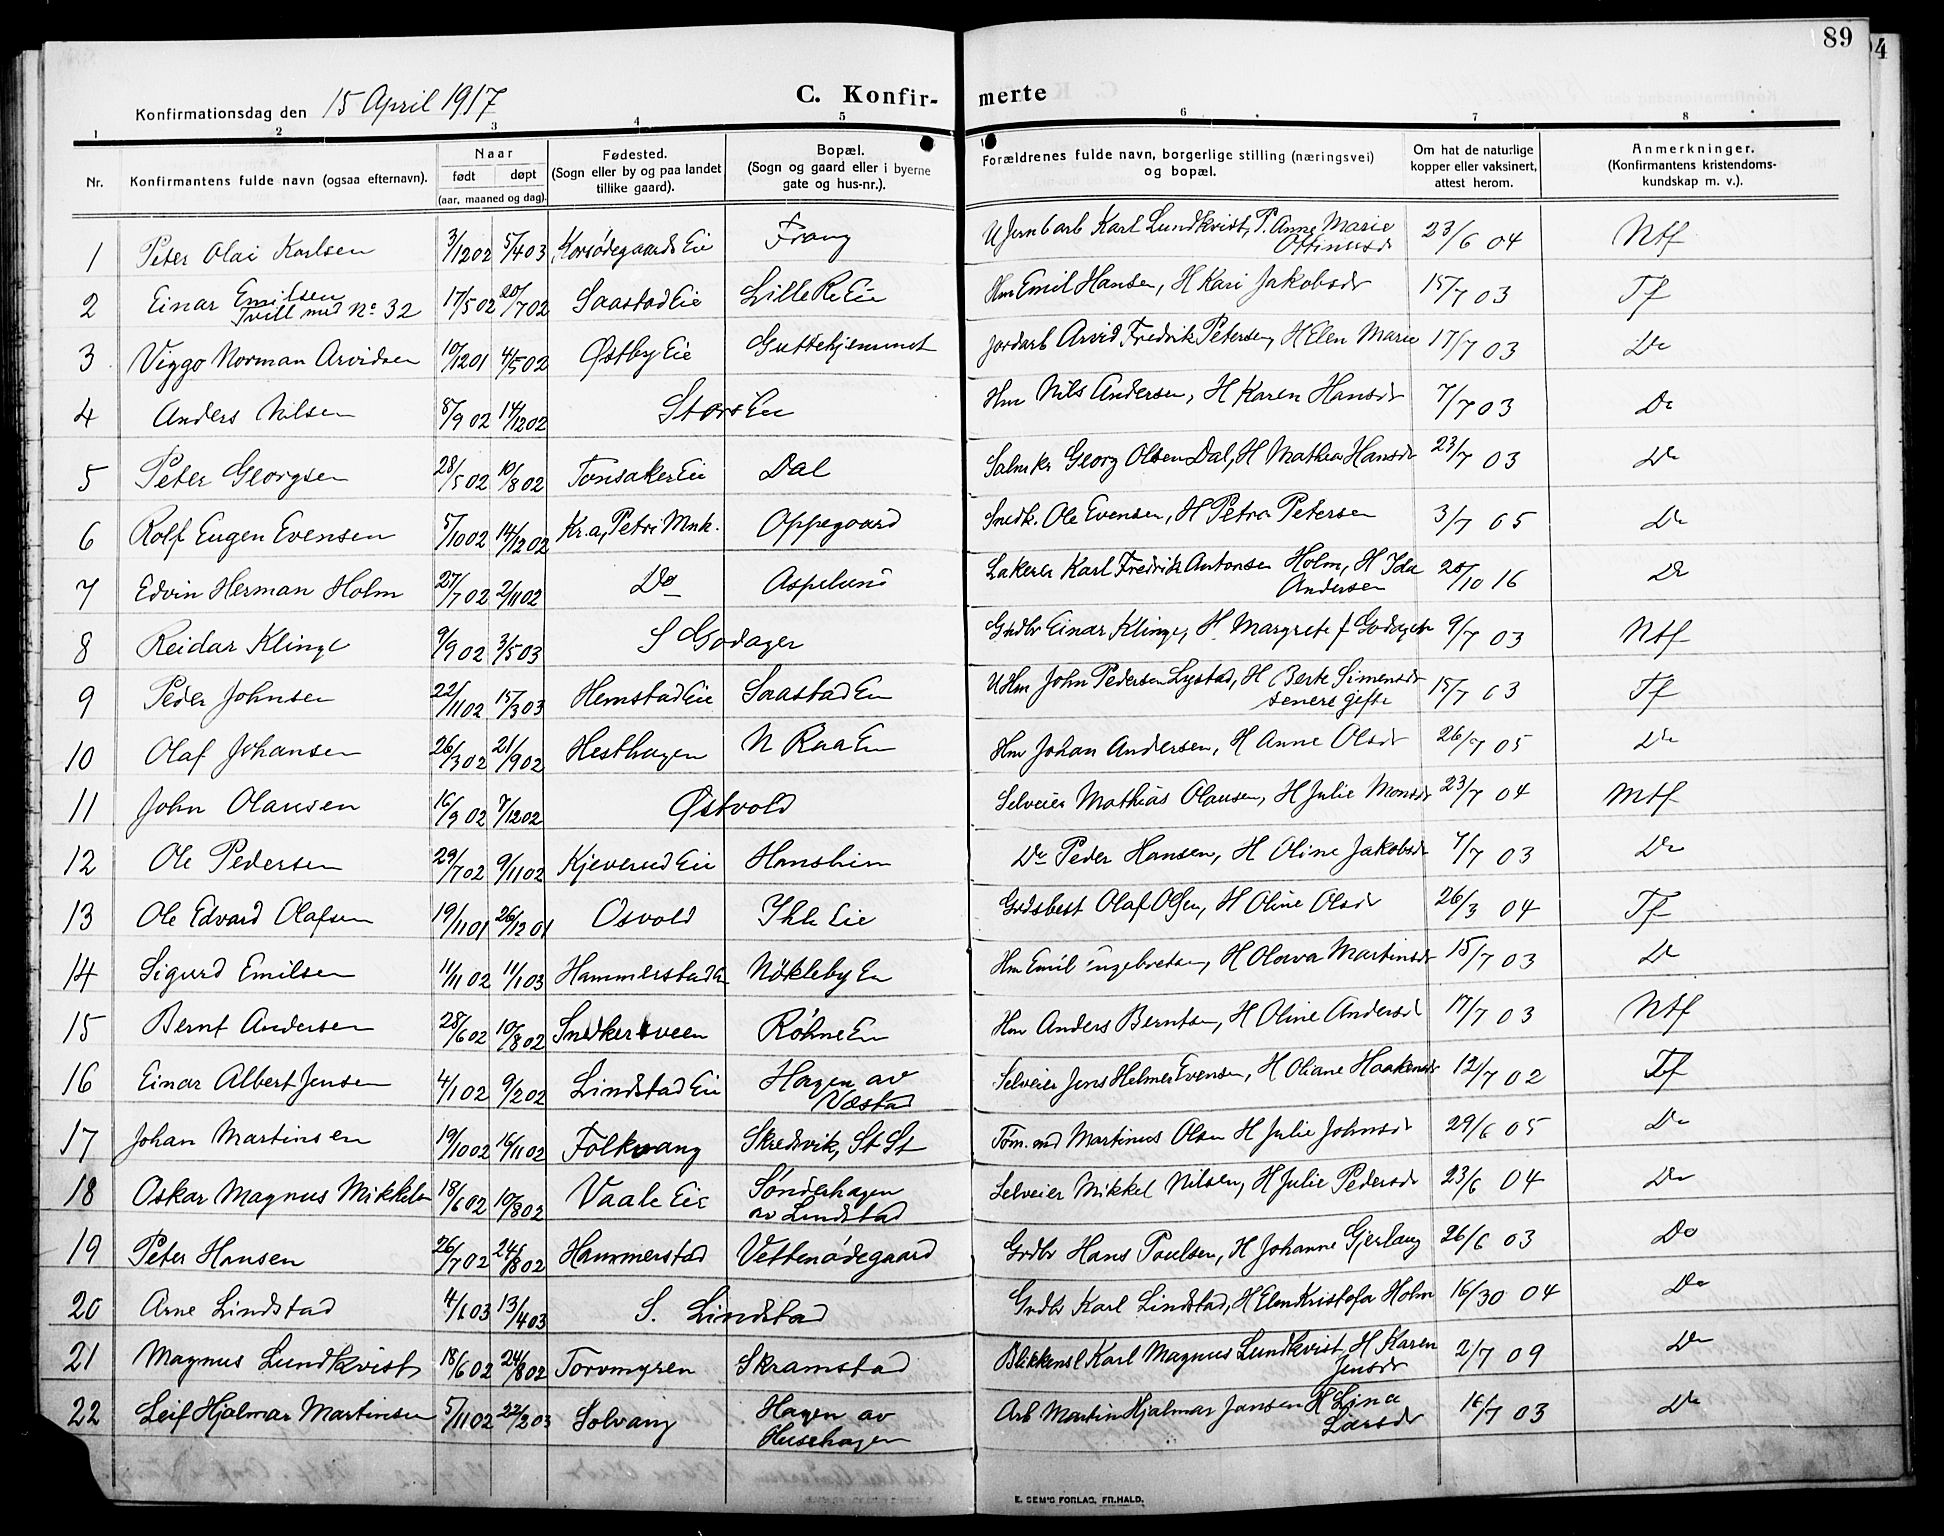 89
4
Konfirmationsdag den 15 April 1917
C. Konfir- merte
1 2 3 4 5 6 7 8
Nr. Konfirmantens fulde navn (ogsaa efternavn). Naar født døpt (aar, maaned og dag). Fødested. (Sogn eller by og paa landet tillike gaard). Bopæl. (Sogn og gaard eller i byerne gate og hus-nr.). Forældrenes fulde navn, borgerlige stilling (næringsvei) og bopæl. Om hat de naturlige kopper eller vaksinert, attest herom. Anmerkninger. (Konfirmantens kristendoms- kundskap m. v.).
1 Peter Olai Karlsen 3/12 02 5/4 03 Korsødegaards Eie Frang U Jernbarb Karl Lundkvist, P. Anne Marie Ottinusdr 23/6 04 Ntf
2 Einar Emilsen Tvill med No 32 17/5 02 20/7 02 Saastad Eie Lille Re Eie Hm Emil Hansen, H Kari Jakobsdr 15/7 03 Tf
3 Viggo Norman Arvidsen 10/12 01 4/5 02 Østby Eie Guttehjemmet Jordarb Arvid Fredrik Petersen, H Elen Marie 17/7 03 Do
4 Anders Nilsen 8/9 02 14/12 02 Stors Eie Hm Nils Andersen, H Karen Hansdr 7/7 03 Do
5 Peter Georgsen 28/5 02 10/8 02 Tonsaker Eie Dal Salmkr Georg Olsen Dal, H Mathea Hansdr 23/7 03 Do
6 Rolf Eugen Evensen 5/10 02 14/12 02 Kr.a, Petri Mnk. Oppegaard Snedk. Ole Evensen, H Petra Petersen 3/7 05 Do
7 Edvin Herman Holm 27/7 02 2/11 02 Do Aspelund Lakerer Karl Fredrik Antonsen Holm, H Ida Andersen 20/10 16 Do
8 Reidar Klinge 9/9 02 3/5 03 S Godager Grdbr Einar Klinge, H Margrete f Godager 9/7 03 Ntf
9 Peder Johnsen 22/11 02 15/3 03 Hemstad Eie Saastad En U Hm John Pedersen Lystad, H Berte Simensdr senere gifte 15/7 03 Tf
10 Olaf Johansen 26/3 02 21/9 02 Hesthagen N Raa En Hm Johan Andersen, H Anne Olsdr 26/7 05 Do
11 John Olausen 16/9 02 7/12 02 Østvold Selveier Mathias Olausen, H Julie Monsdr 23/7 04 Mtf
12 Ole Pedersen 29/7 02 9/11 02 Kjeverud Eie Hanshim Do Peder Hansen, H Oline Jakobsdr 7/7 03 Do
13 Ole Edvard Olafsen 19/11 01 26/12 01 Osvold Ihle Eie Grdsbest Olaf Olsen, H Oline Olsdr 26/3 04 Tf
14 Sigurd Emilsen 11/11 02 11/1 03 Hammerstad En Nökleby En Hm Emil Engebretsen, H Olava Martinsdr 15/7 03 Do
15 Bernt Andersen 28/6 02 10/8 02 Snedkersveen Röhne En Hm Anders Berntsen, H Oline Andersd 17/7 03 Ntf
16 Einar Albert Jensen 4/1 02 9/2 02 Lindstad Eie Hagen av Væstad Selveier Jens Helmer Evensen, H Oliane Haakensdr 12/7 02 Tf
17 Johan Martinsen 19/10 02 16/11 02 Folkvang Skredvik, St St Töm.md Martinus Olsen H Julie Johnsdr 29/6 05 Do
18 Oskar Magnus Mikkelsen 18/6 02 10/8 02 Vaale Eie Søndehagen av Lindstad Selveier Mikkel Nilsen, H Julie Pedersdr 23/6 04 Do
19 Peter Hansen 26/7 02 24/8 02 Hammerstad Vettenødegaard Grdbr Hans Poulsen, H Johanne Gjerlaug 26/6 03 Do
20 Arne Lindstad 4/1 03 13/4 03 S. Lindstad Grdbr Karl Lindstad, H Elen Kristofa Holm 16/30 04 Do
21 Magnus Lundkvist 18/6 02 24/8 02 Torvmyren Skramstad Blikkensl Karl Magnus Lundkvist, H Karen Jensdr 2/7 09 Do
22 Leif Hjalmar Martinsen 5/11 02 22/2 03 Solvang Hagen av Husehagen Arb Martin Hjalmar Jansen H Lina Larsdr 16/7 03 Do
E. SEM'S FORLAG, FR.HALD.